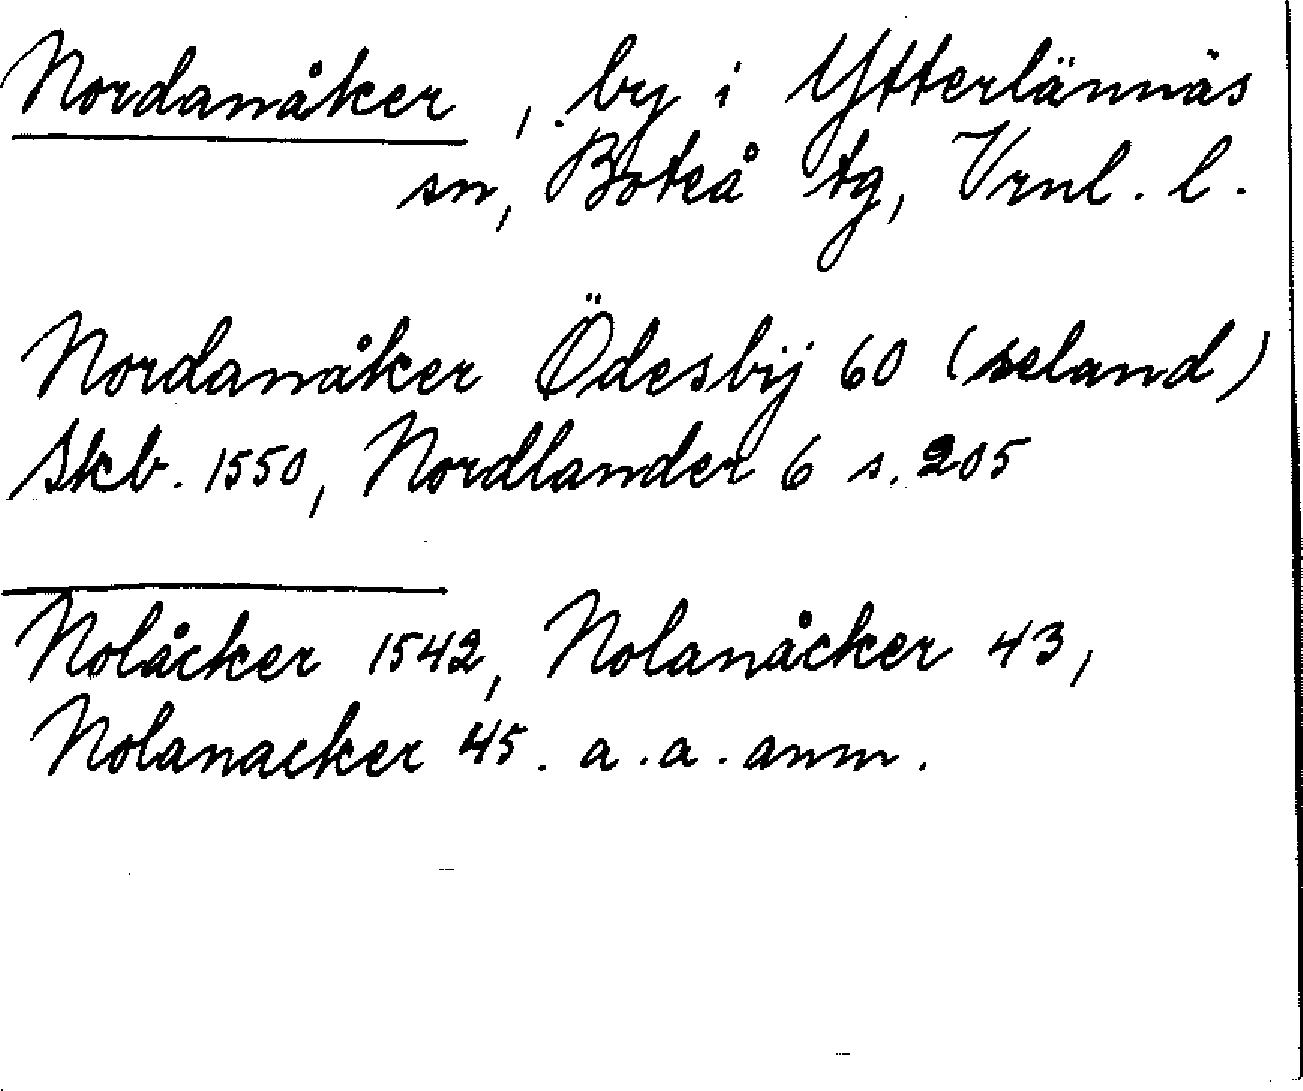 Nordanåker, by i Ytterlännäs
sn, Boteå tg, Vrnl. l.
Nordanåker Ödesbÿ 60 (seland)
Skb. 1550, Nordlander 6 s. 205
Nolåcker 1542, Nolanåcker 43,
Nolanacker 45. a. a. anm.